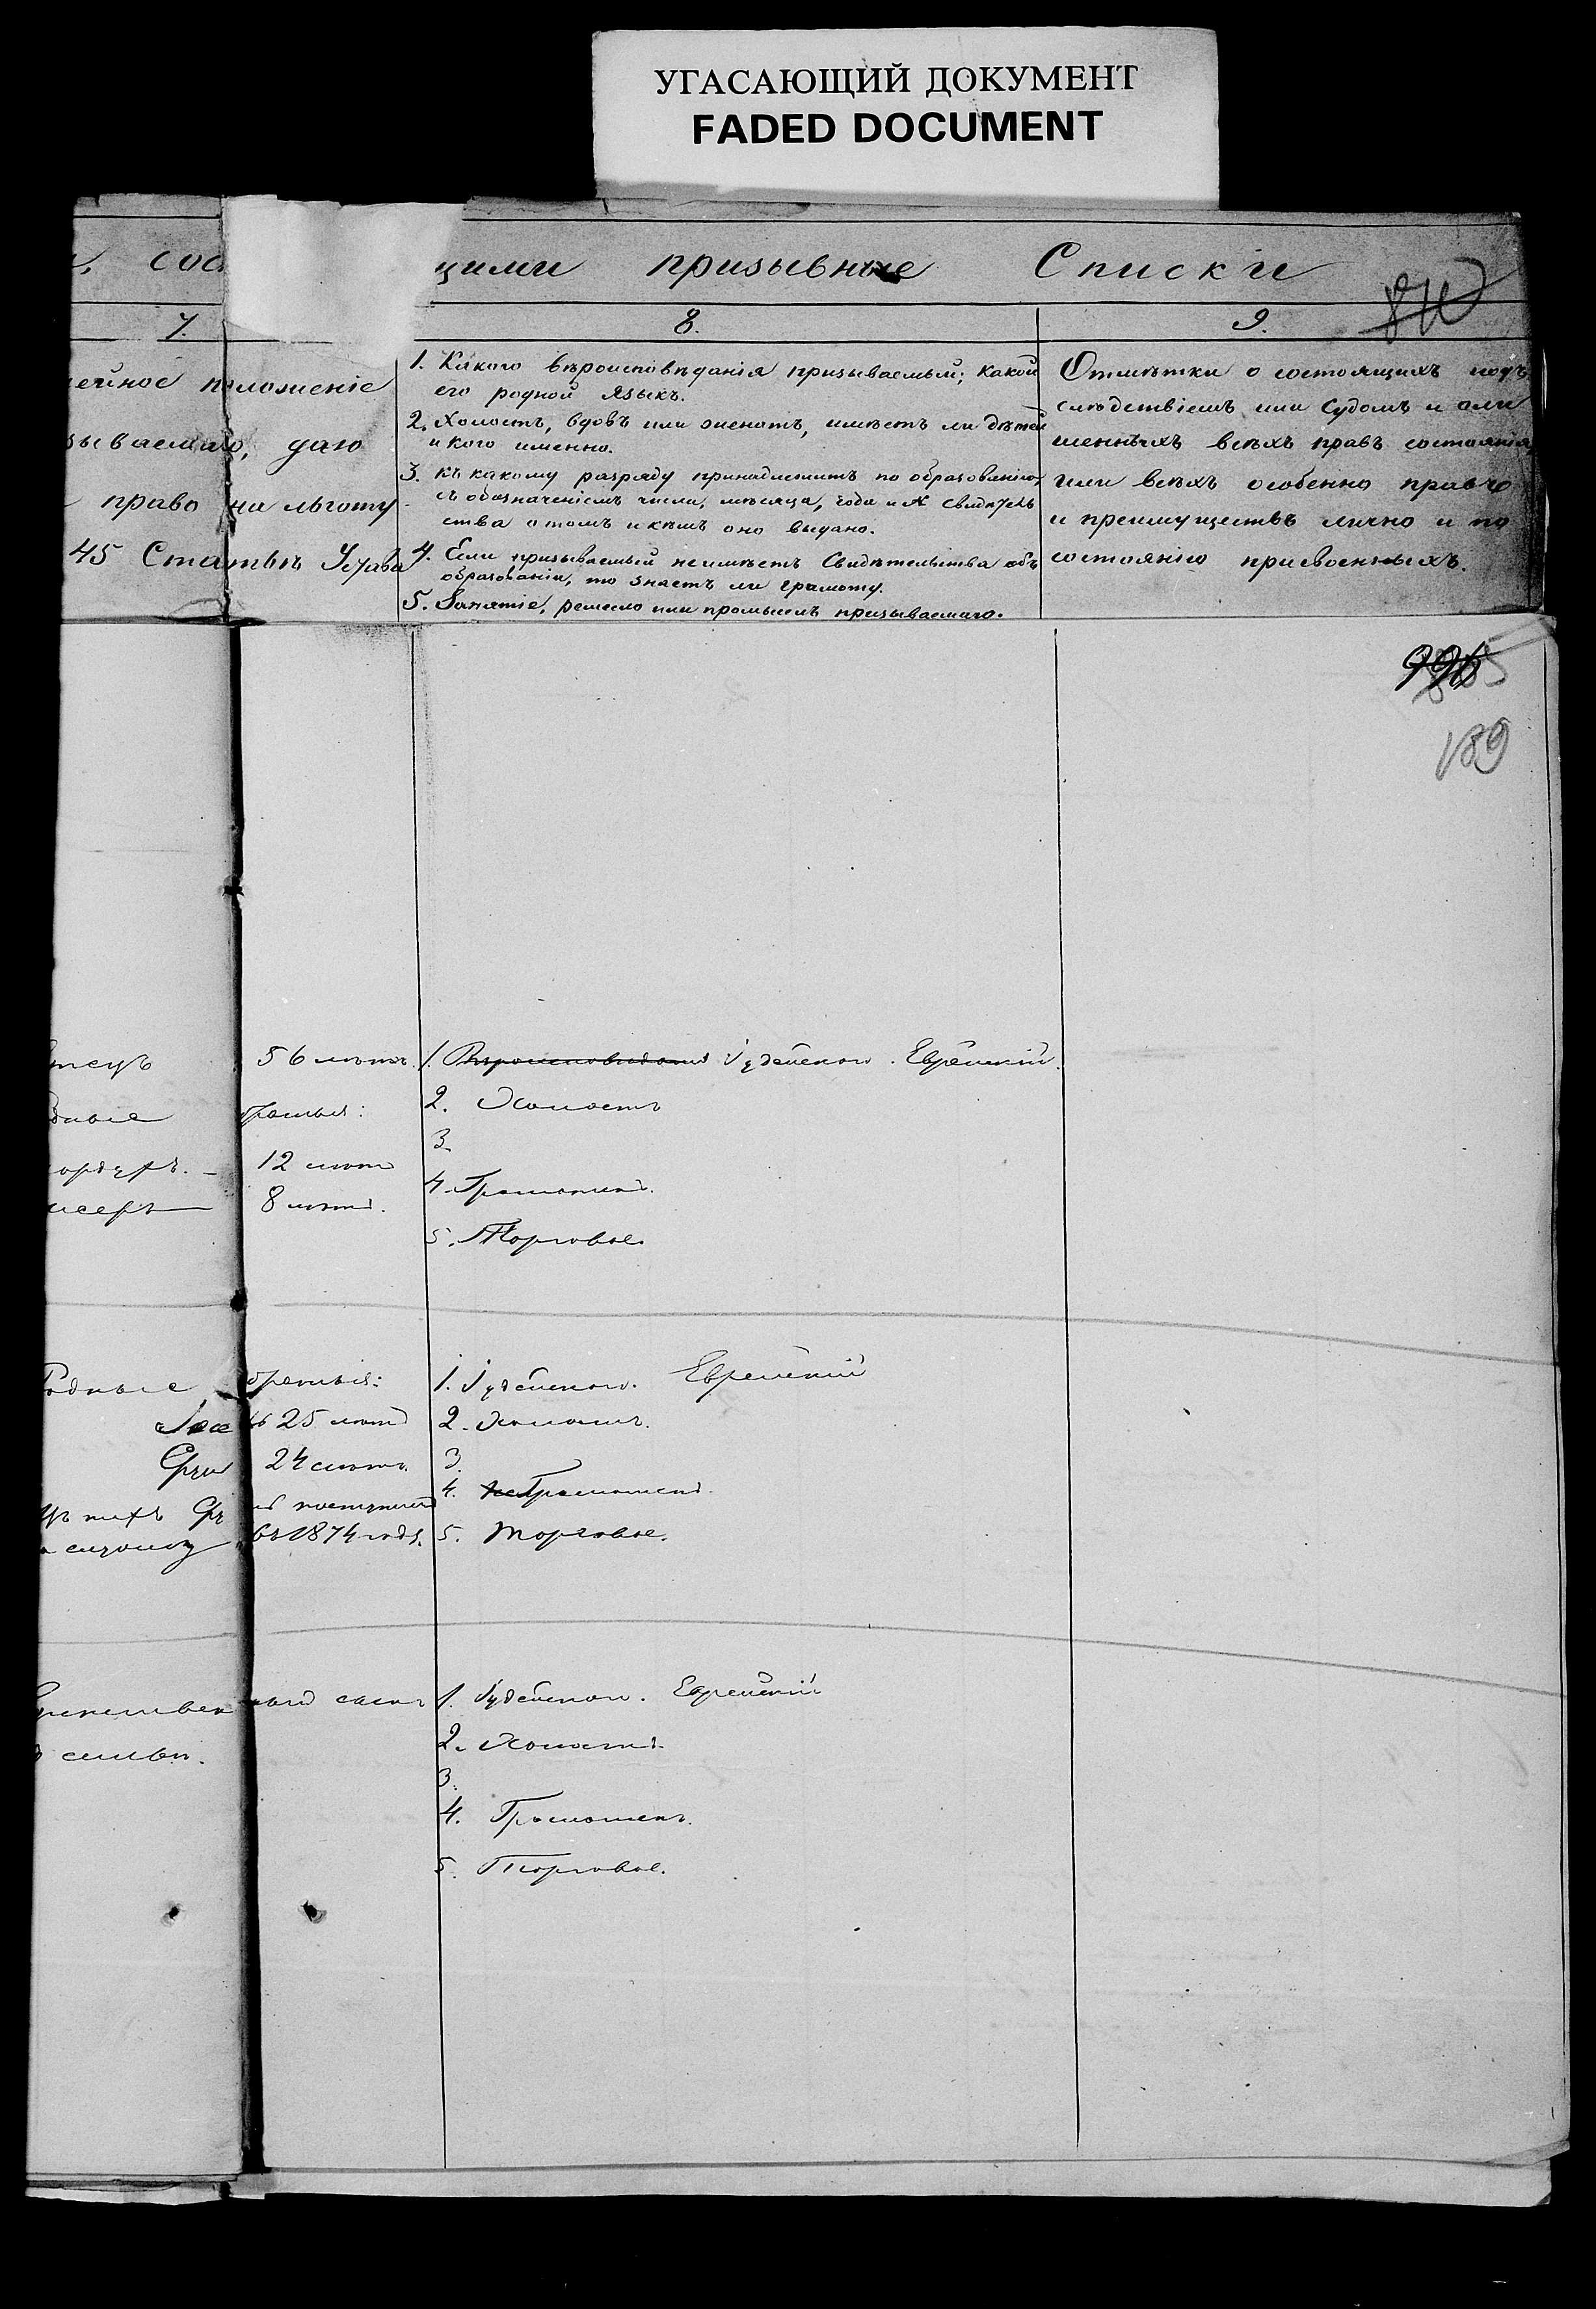 УГАСАЮЩИЙ ДОКУМЕНТ
FADED DOCUMENT
щими призывные Списки
7.
8.
9.
ейное положеніе
зываемаго, даю
право на льготу
45 Статьѣ Устава
1. Какого вѣроисповѣданія призываемый; какой
его родной языкъ.
2. Холостъ, вдовъ или женатъ, имѣетъ ли дѣтей
и кого именно.
3. къ какому разряду принадлежитъ по образованію
съ обозначеніемъ числа, мѣсяца, года и № свидѣтель
ства о томъ и кѣмъ оно выдано.
4. Если призываемый не имѣетъ Свидѣтельства объ
образованіи, то знаетъ ли грамоту.
5. Занятіе, ремесло или промыселъ призываемаго.
Отмѣтки о состоящихъ подъ
слѣдствіемъ или судомъ и о ли
шенныхъ всѣхъ правъ состоянія
или всѣхъ особенно правъ
и преимуществъ лично и по
состоянію присвоенныхъ.
189
56 лѣтъ
братья:
12 лѣтъ
8 лѣтъ.
1. Вѣроисповѣданія Іудейскаго. Еврейскій.
2. Холостъ
3.
4. Грамотенъ.
5. Торговое.
Родные братья:
25 лѣтъ
24 лѣтъ.
въ 1874 году.
1. Іудейскаго. Еврейскій
2. Холостъ.
3.
4. Грамотенъ.
5. Торговое.
семьи.
1. Іудейскаго. Еврейскій
2. Холостъ.
3.
4. Грамотенъ.
5. Торговое.